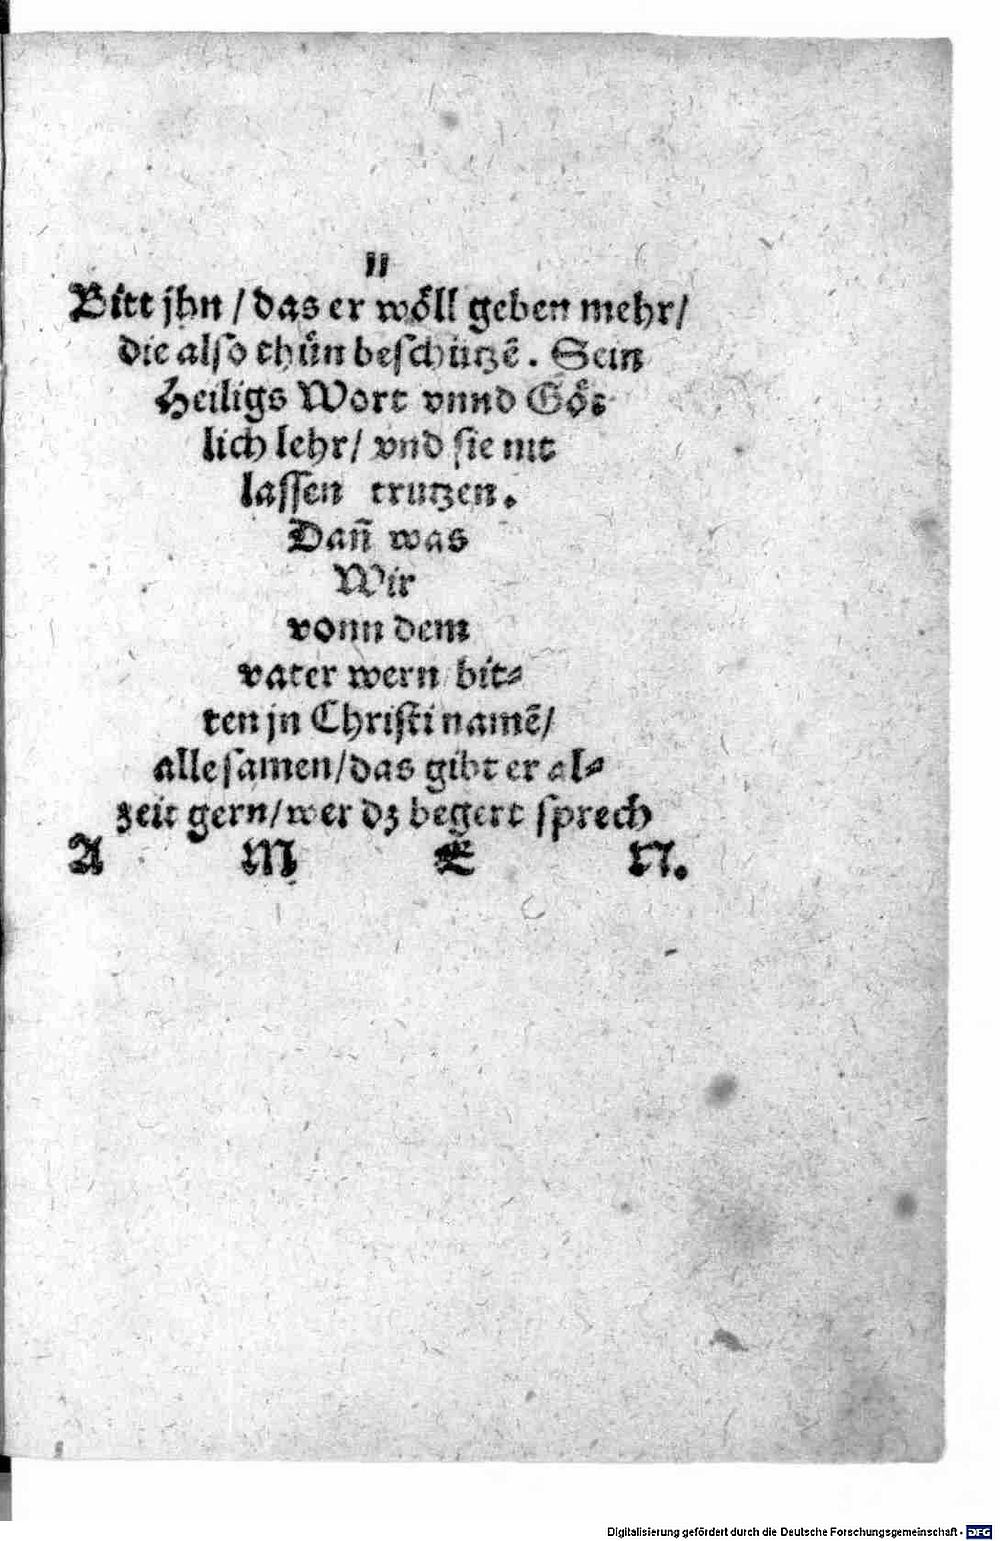 11
Bitt jhn / das er wöll geben mehr /
die also thuͤn beschützẽ . Sein
Heiligs Wort vnnd Goͤt⸗
lich lehr / vnd sie nit
lassen trutzen .
Dañ was
Wir
vonn dem
vater wern bit⸗
ten jn Christi namẽ /
alle samen / das gibt er al⸗
zeit gern / wer dz begert sprech
A M E N .
Digitalisierung gefördert durch die Deutsche Forschungsgemeinschaft - DFG